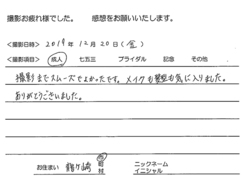 撮影お疲れ様でした。 感想をお願いいたします。
<撮影日時> 2019年 12月 20日 (金)
<撮影項目> 成人 七五三 ブライダル 記念 その他
撮影までスムーズでよかったです。メイクも髪型も気に入りました。
ありがとうございました。
お住まい 鶴ヶ島 市 ニックネーム
イニシャル